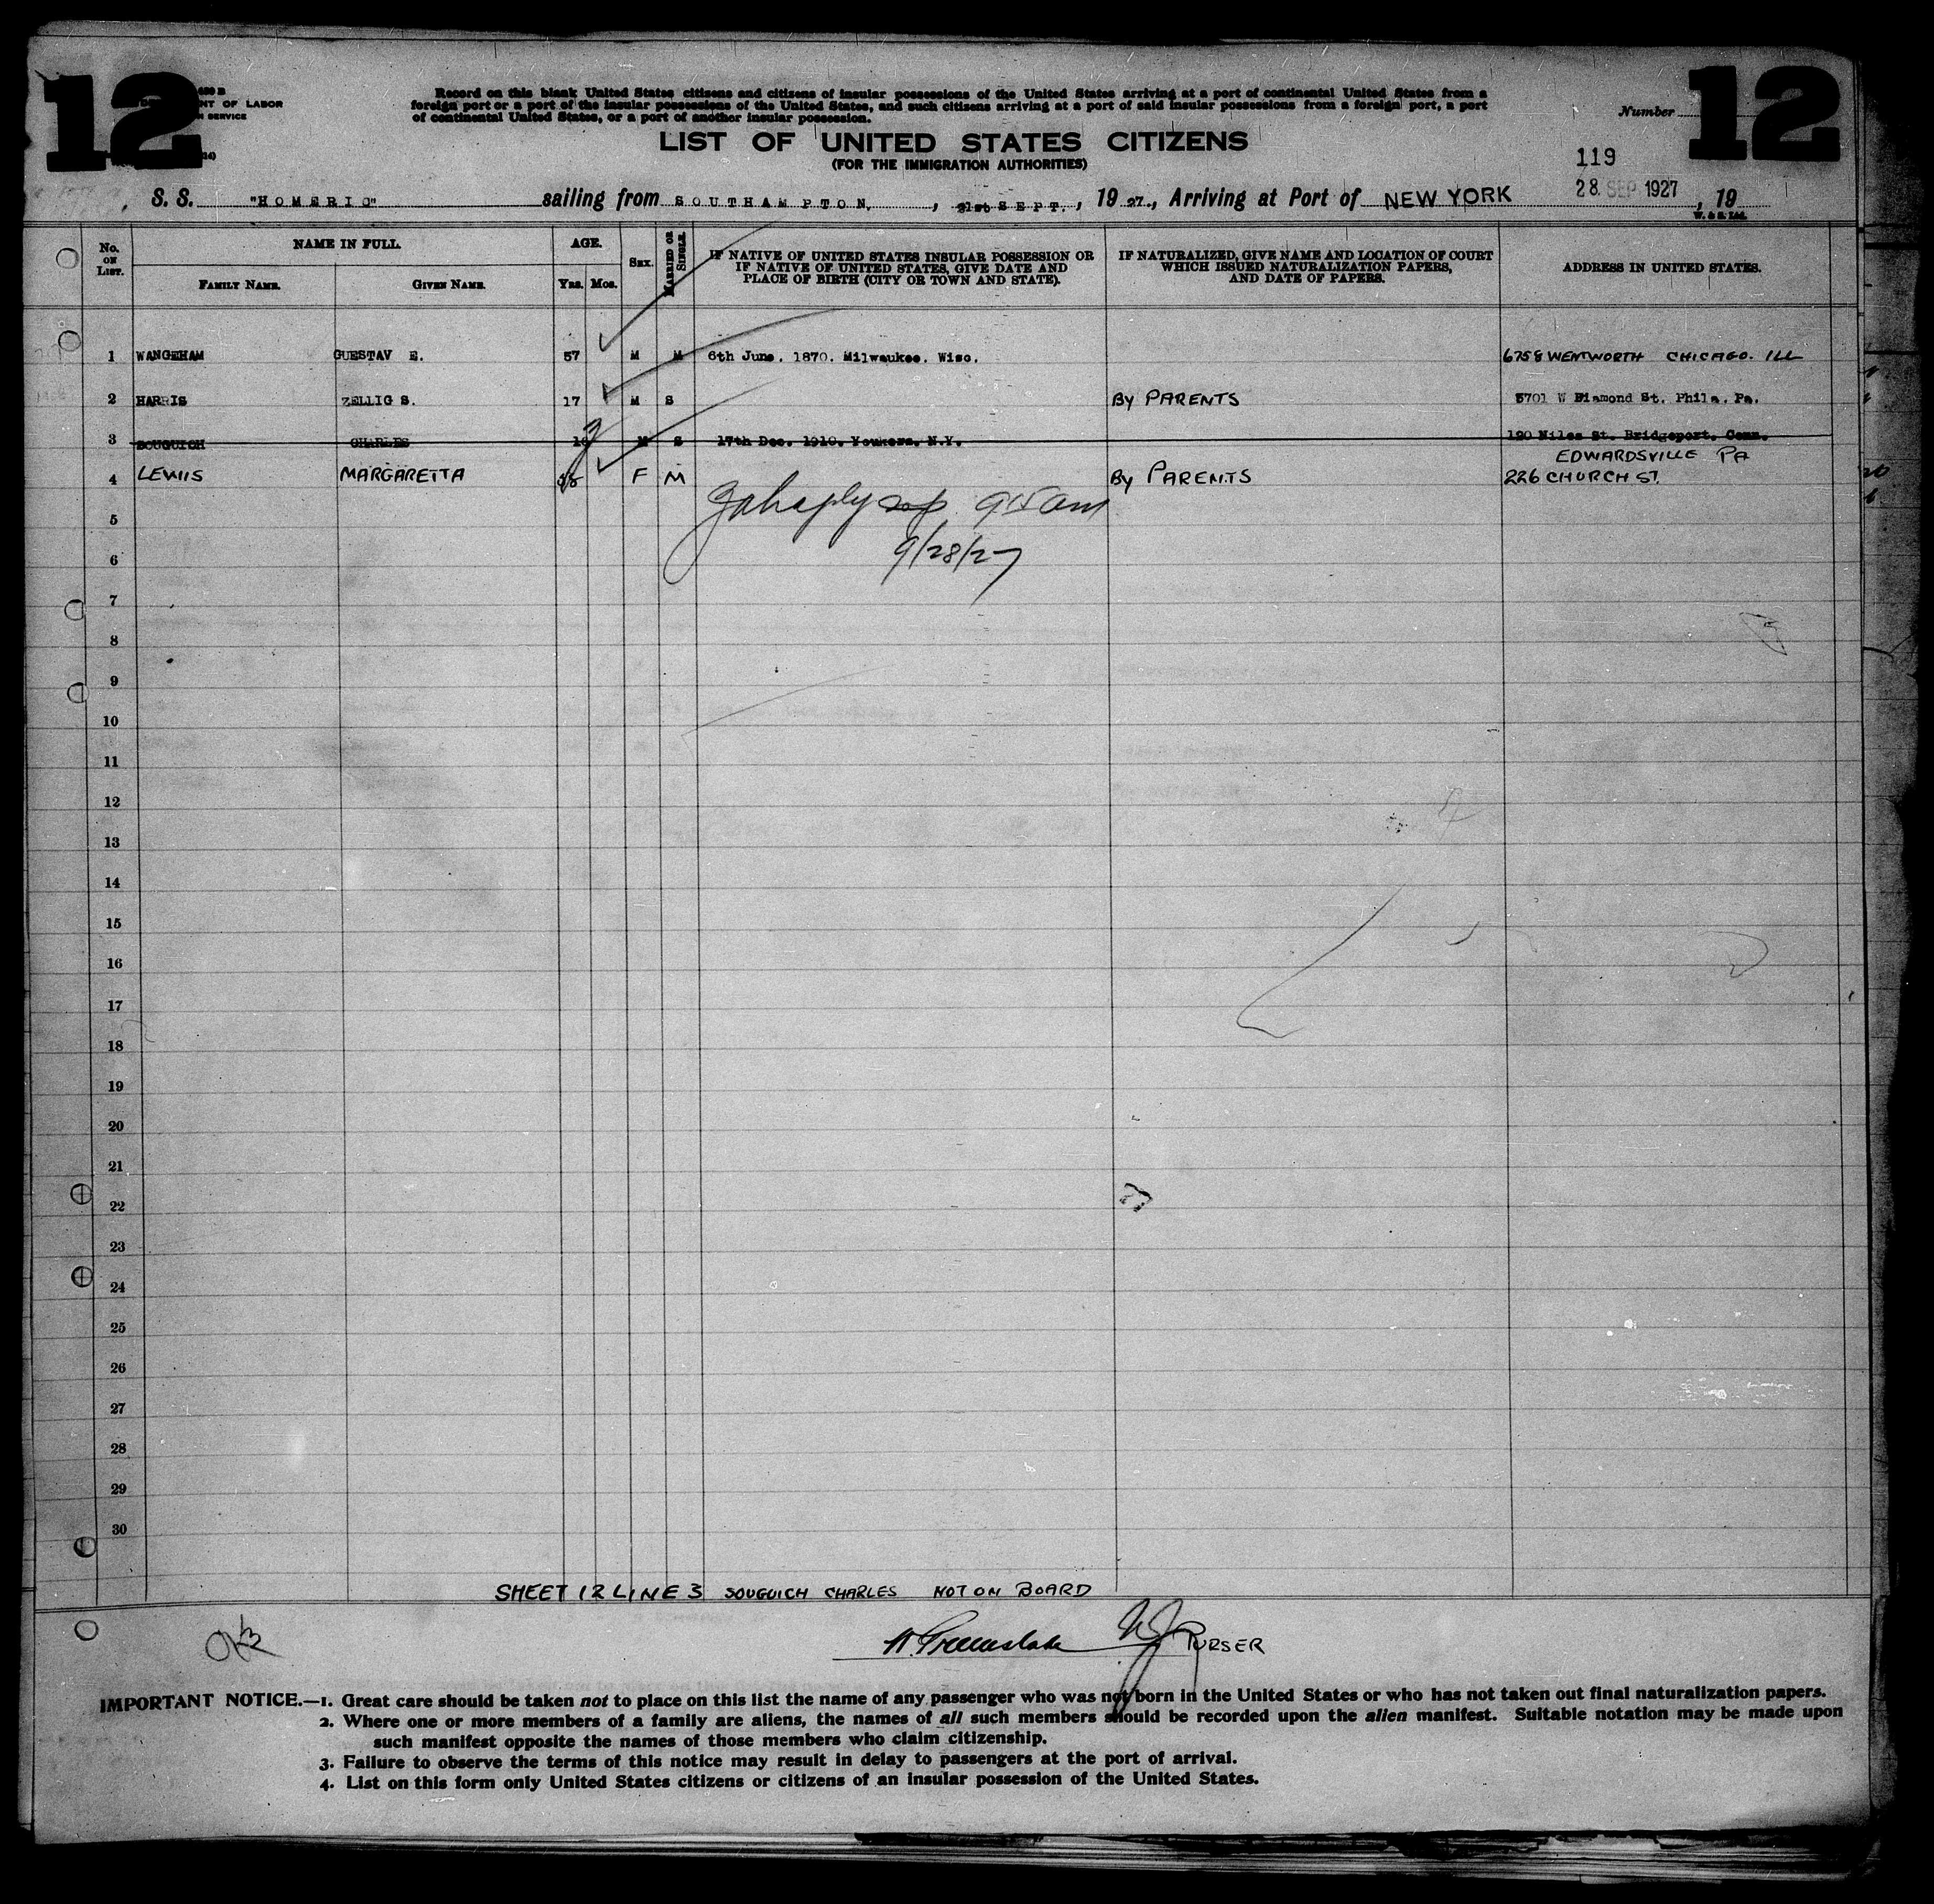 12
12
NT OF LABOR
SERVICE
Record on this blank United States citizens and citizens of insular possessions of the United States arriving at a port of continental United States from a
foreign port or a port of the insular possessions of the United States, and such citizens arriving at a port of said insular possessions from a foreign port, a port
of continental United States, or a port of another insular possession.
Number
LIST OF UNITED STATES CITIZENS
(FOR THE IMMIGRATION AUTHORITIES)
119
S. S. "HOMERIC" sailing from SOUTHAMPTON, 21st SEPT., 1927., Arriving at Port of NEW YORK 28 SEP 1927, 19
W. & S. Ltd.
No. ON LIST. NAME IN FULL. AGE. SEX. MARRIED OR SINGLE. IF NATIVE OF UNITED STATES INSULAR POSSESSION OR IF NATIVE OF UNITED STATES, GIVE DATE AND PLACE OF BIRTH (CITY OR TOWN AND STATE). IF NATURALIZED, GIVE NAME AND LOCATION OF COURT WHICH ISSUED NATURALIZATION PAPERS, AND DATE OF PAPERS. ADDRESS IN UNITED STATES.
FAMILY NAME. GIVEN NAME. YRS. MOS.
1 WANGEHAM GUESTAV E. 57 M M 6th June. 1870. Milwaukee. Wisc. 6758 WENTWORTH CHICAGO. ILL
2 HARRIS ZELLIG S. 17 M S BY PARENTS 5701 W Diamond St. Phila. Pa.
3 SOUGUICH CHARLES 16 M S 17th Dec. 1910. Yonkers. N.Y. 120 Niles St. Bridgeport. Conn.
EDWARDSVILLE PA
4 LEWIS MARGARETTA F M BY PARENTS 226 CHURCH ST.
5 915 am
6 9/28/27
7
8
9
10
11
12
13
14
15
16
17
18
19
20
21
22
23
24
25
26
27
28
29
30
SHEET 12 LINE 3 SOUGUICH CHARLES NOT ON BOARD
PURSER
IMPORTANT NOTICE.—1. Great care should be taken not to place on this list the name of any passenger who was not born in the United States or who has not taken out final naturalization papers.
2. Where one or more members of a family are aliens, the names of all such members should be recorded upon the alien manifest. Suitable notation may be made upon
such manifest opposite the names of those members who claim citizenship.
3. Failure to observe the terms of this notice may result in delay to passengers at the port of arrival.
4. List on this form only United States citizens or citizens of an insular possession of the United States.